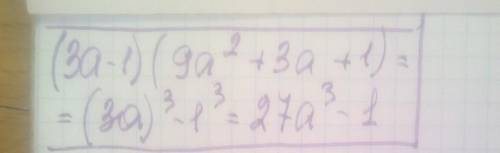 (3a-1)(9a²+3a+1)=
=(3a)³-1³=27a³-1